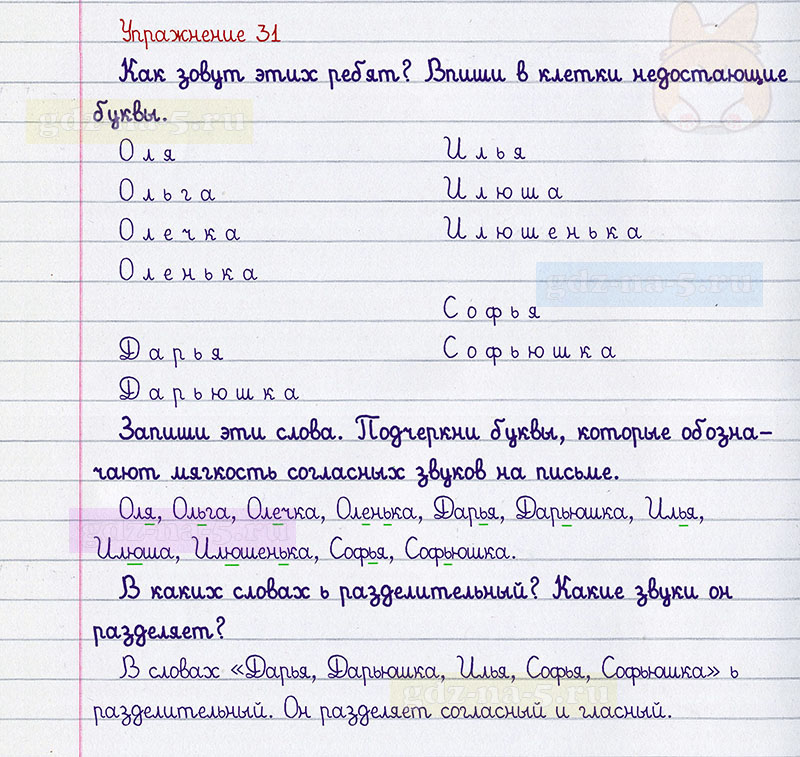 Упражнение 31
Как зовут этих ребят? Впиши в клетки недостающие
буквы.
gdz-na-5.ru
Оля Илья
Ольга Илюша
Олечка Илюшенька
Оленька
gdz-na-5.ru
Софья
Дарья Софьюшка
Дарьюшка
Запиши эти слова. Подчеркни буквы, которые обозна-
чают мягкость согласных звуков на письме.
Оля, Ольга, Олечка, Оленька, Дарья, Дарьюшка, Илья,
gdz-na-5.ru
Илюша, Илюшенька, Софья, Софьюшка.
В каких словах ь разделительный? Какие звуки он
разделяет?
В словах «Дарья, Дарьюшка, Илья, Софья, Софьюшка» ь
gdz-na-5.ru
разделительный. Он разделяет согласный и гласный.